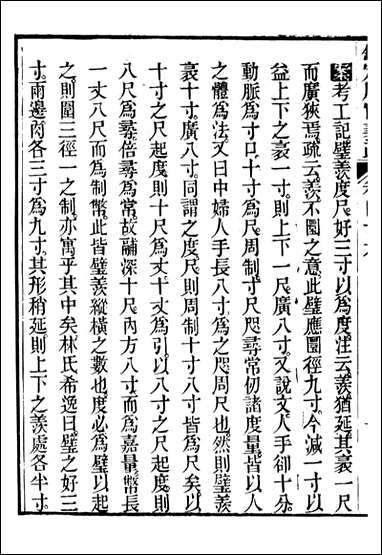 案考工記璧羨度尺好三寸以為度注云羨猶延其袤一尺
而廣狹焉疏云羨不圜之意此璧應圜徑九寸今減一寸以
益上下之袤一寸則上下一尺廣八寸又說文人手卻十分
動脈為寸口十寸為尺周制寸尺咫尋常仞諸度量皆以人
之體為法又曰中婦人手長八寸為之咫周尺也然則璧羨
袤十寸廣八寸同謂之度尺則周制十寸八寸皆為尺矣以
十寸之尺起度則十尺為丈十丈為引以八寸之尺起度則
八尺為尋倍尋為常故鬴深十尺內方八寸而為嘉量幣長
一丈八尺而為制幣此皆璧羨縱橫之數也度必為璧以起
之則圍三徑一之制亦寓乎其中矣林氏希逸曰璧之好三
寸兩邊肉各三寸為九寸其形稍延則上下之羨處各半寸